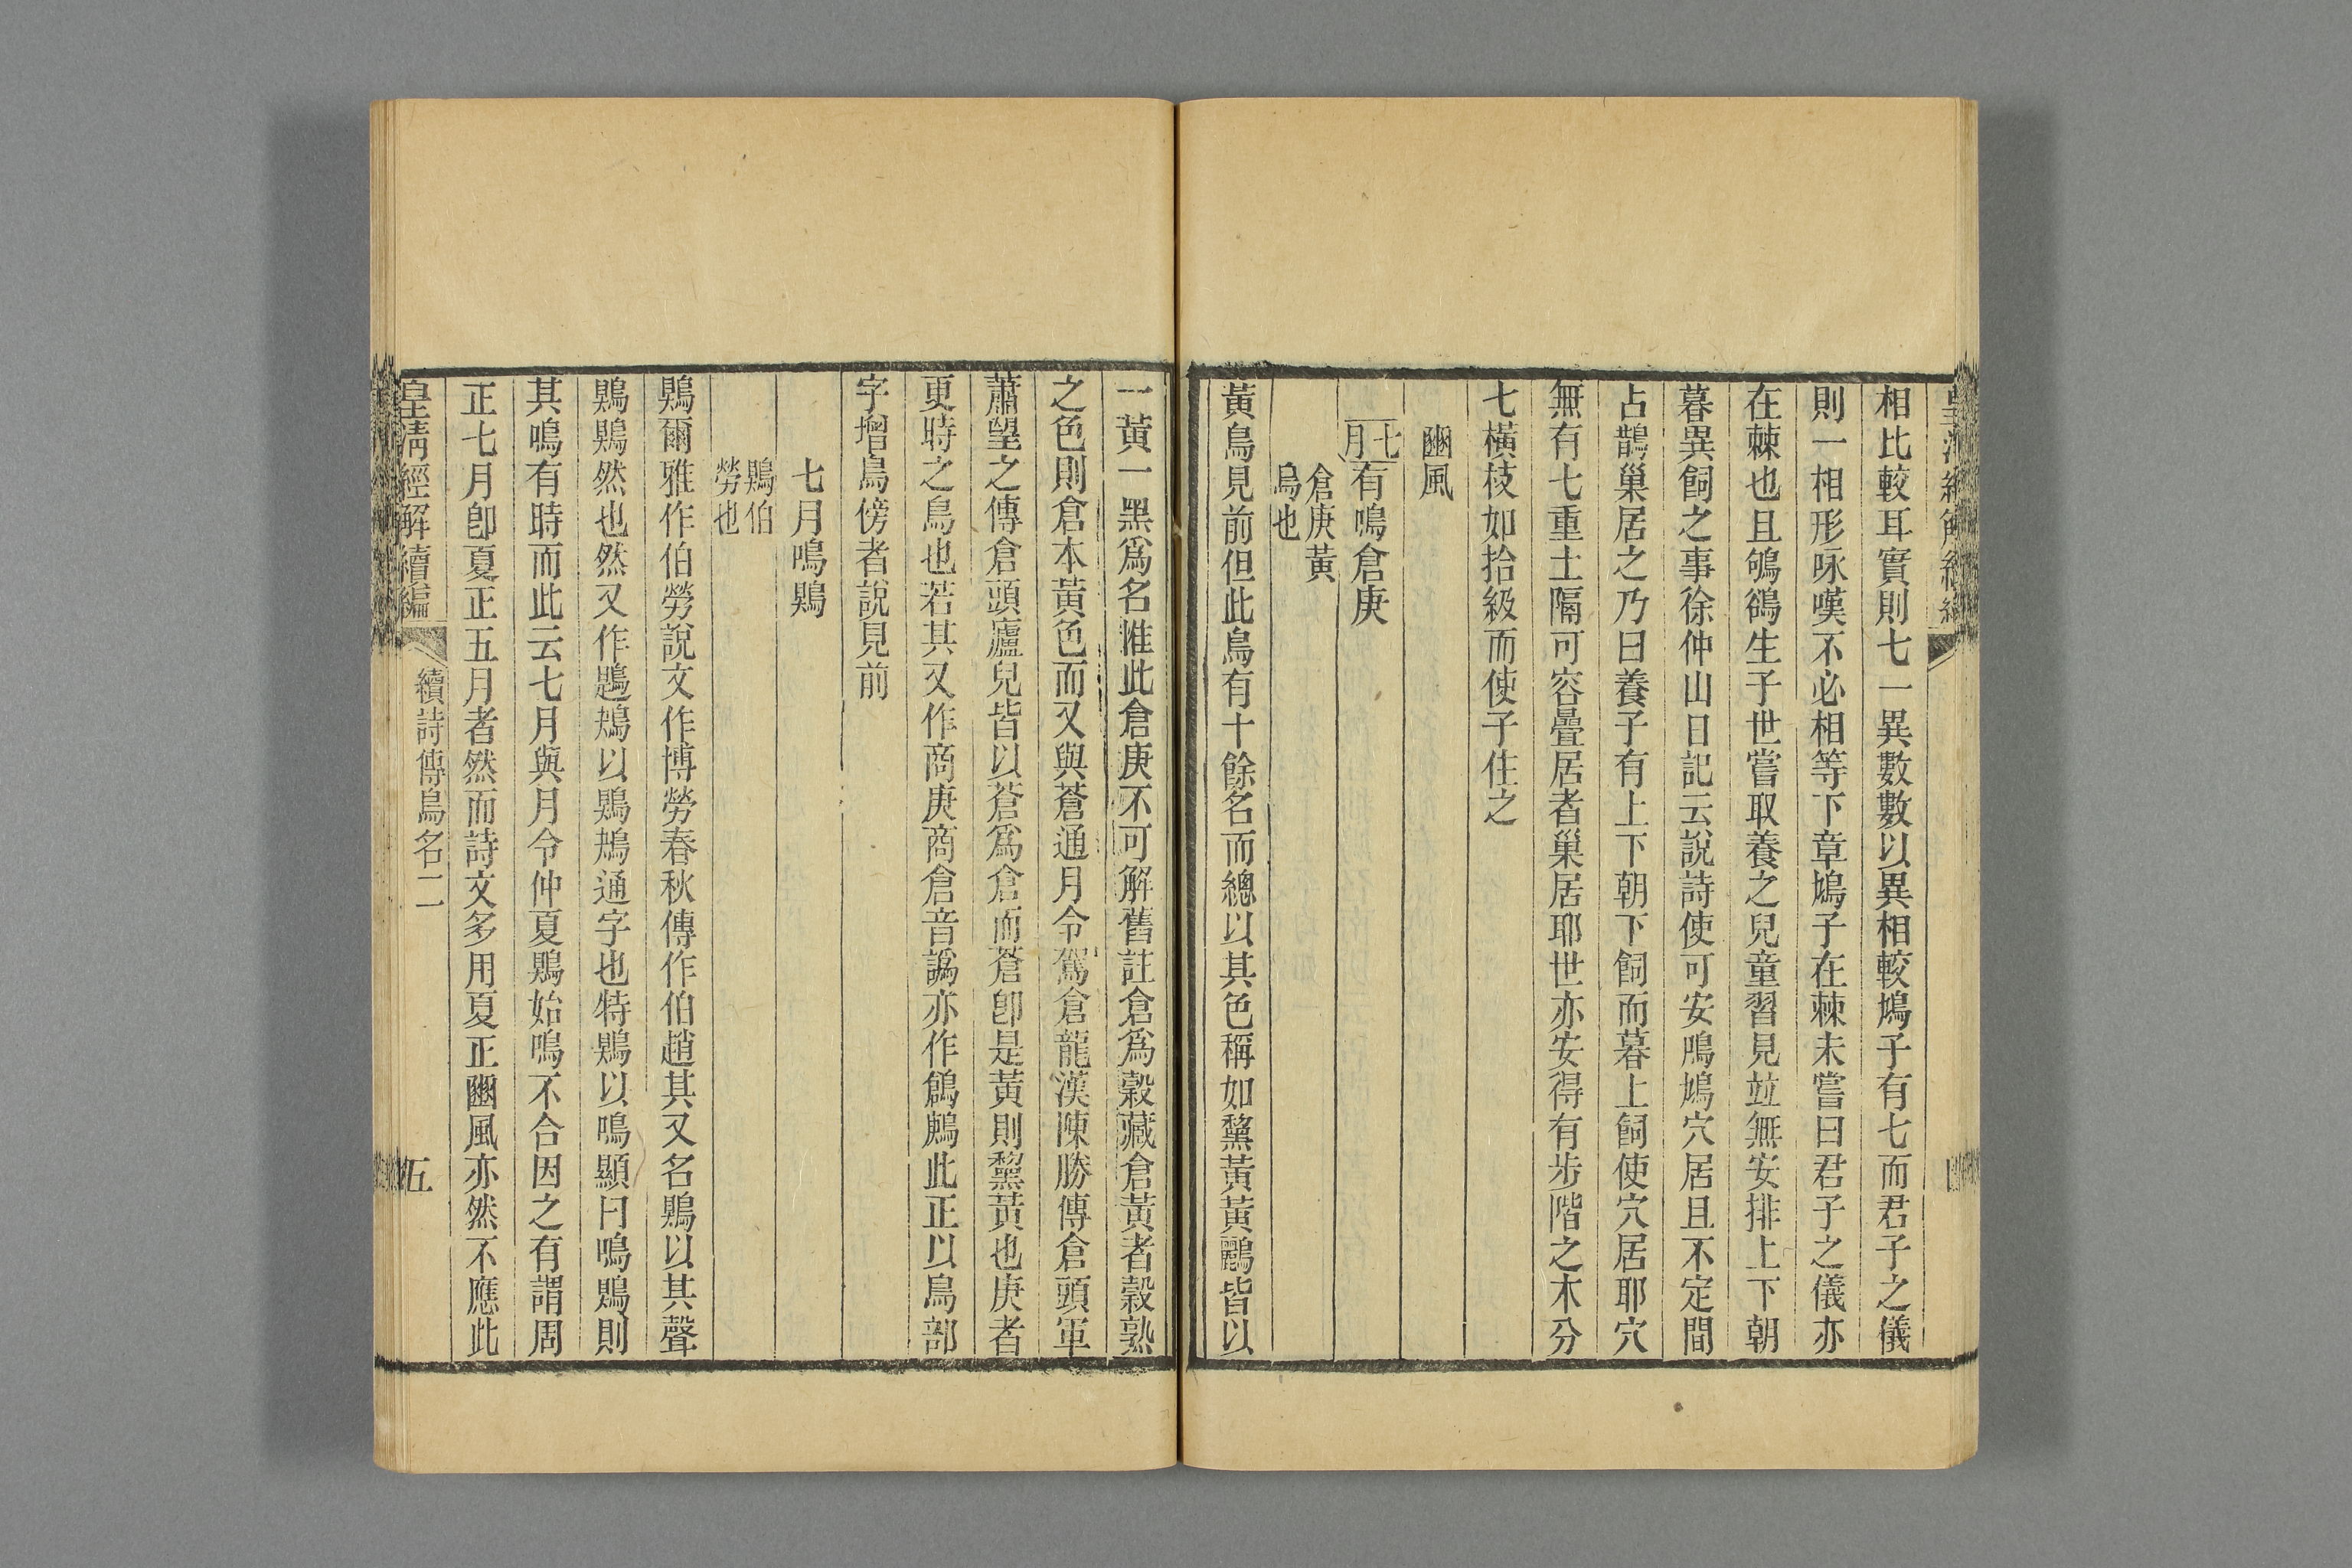 相比較耳實則七一異數數以異相較鳲子有七而君子之儀
則一相形咏嘆不必相等下章鳲子在棘未嘗曰君子之儀亦
在棘也且鴝鵒生子世嘗取養之兒童習見竝無安排上下朝
暮異飼之事徐仲山日記云說詩使可安鳲鳩穴居且不定間
占鵲巢居之乃曰養子有上下朝下飼而暮上飼使穴居耶穴
無有七重土隔可容疊居者巢居耶世亦安得有步階之木分
七橫枝如拾級而使子住之
豳風
七月有鳴倉庚
倉庚黃
鳥也
黃鳥見前但此鳥有十餘名而總以其色稱如鵹黃黃鸝皆以
一黃一黑爲名惟此倉庚不可解舊註倉爲穀藏倉黃者穀熟
之色則倉本黃色而又與蒼通月令駕倉龍漢陳勝傳倉頭軍
蕭望之傳倉頭廬兒皆以蒼爲倉而蒼卽是黃則黧黃也庚者
更時之鳥也若其又作商庚商倉音譌亦作鶬鶊此正以鳥部
字增鳥傍者說見前
七月鳴鵙
鵙伯
勞也
鵙爾雅作伯勞說文作博勞春秋傳作伯趙其又名鵙以其聲
鵙鵙然也然又作鶗鴂以鵙鴂通字也特鵙以鳴顯曰鳴鵙則
其鳴有時而此云七月與月令仲夏鵙始鳴不合因之有謂周
正七月卽夏正五月者然而詩文多用夏正豳風亦然不應此
皇淸經解續編
續詩傳鳥名二
五